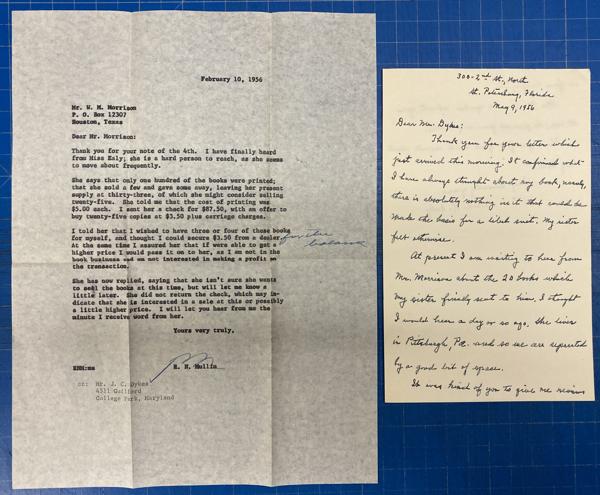 February 10, 1956
Mr. W. M. Morrison
P. O. Box 12307
Houston, Texas
Dear Mr. Morrison:
Thank you for your note of the 4th. I have finally heard
from Miss Ealy; she is a hard person to reach, as she seems
to move about frequently.
She says that only one hundred of the books were printed;
that she sold a few and gave some away, leaving her present
supply at thirty-three, of which she might consider selling
twenty-five. She told me that the cost of printing was
$5.00 each. I sent her a check for $87.50, with an offer to
buy twenty-five copies at $3.50 plus carriage charges.
I told her that I wished to have three or four of these books
for myself, and thought I could secure $3.50 from a dealer
for the balance
At the same time I assured her that if were able to get a
higher price I would pass it on to her, as I am not in the
book business and am not interested in making a profit on
the transaction.
She has now replied, saying that she isn't sure she wants
to sell the books at this time, but will let me know a
little later. She did not return the check, which may in-
dicate that she is interested in a sale at this or possibly
a little higher price. I will let you hear from me the
minute I receive word from her.
Yours very truly,
RNM:ms
R. N. Mullin
cc: Mr. J. C. Dykes
4511 Guilford
College Park, Maryland
300-2nd St., North
St. Petersburg, Florida
May 9, 1956
Dear Mr. Dykes:
Thank you for your letter which
just arrived this morning. It confirmed what
I have always thought about my book, namely,
there is absolutely nothing in it that could be
made the basis for a libel suit. My sister
felt otherwise.
At present I am waiting to hear from
Mr. Morrison about the 20 books which
my sister finally sent to him. I thought
I would hear a day or so ago. She lives
in Pittsburgh, Pa. and so we are separated
by a good bit of space.
It was kind of you to give me